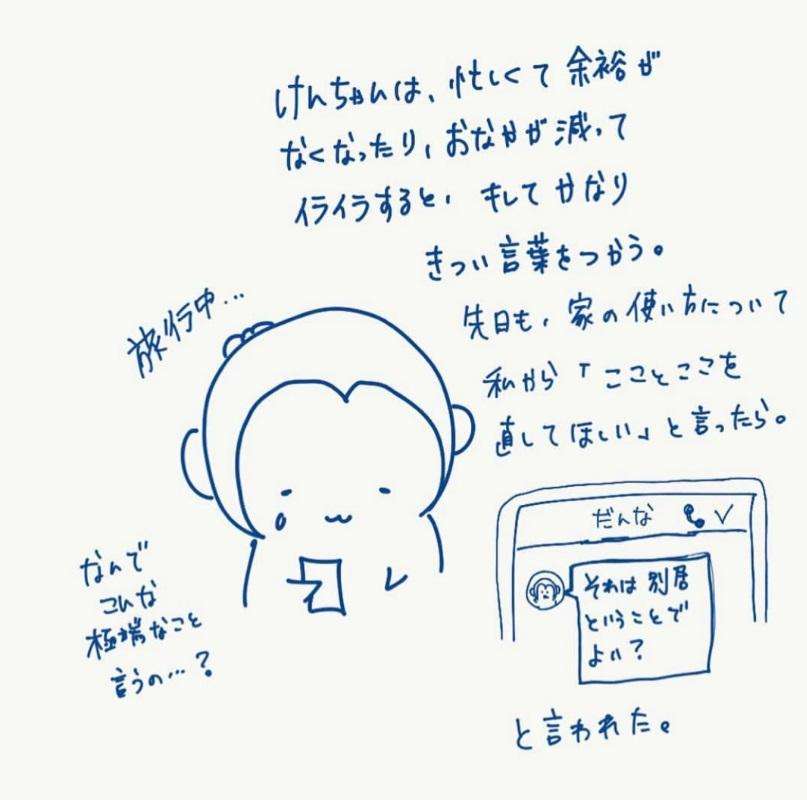 けんちゃんは、忙しくて余裕が
なくなったり、おなかが減って
イライラすると、そしてかなり
きつい言葉をつかう。
先日も、家の使い方について
私から「こことここを
直してほしい」と言ったら。
旅行中…
だんな
それは別居
ということで
よい？
なんで
こんな
極端なこと
言うの…？
と言われた。